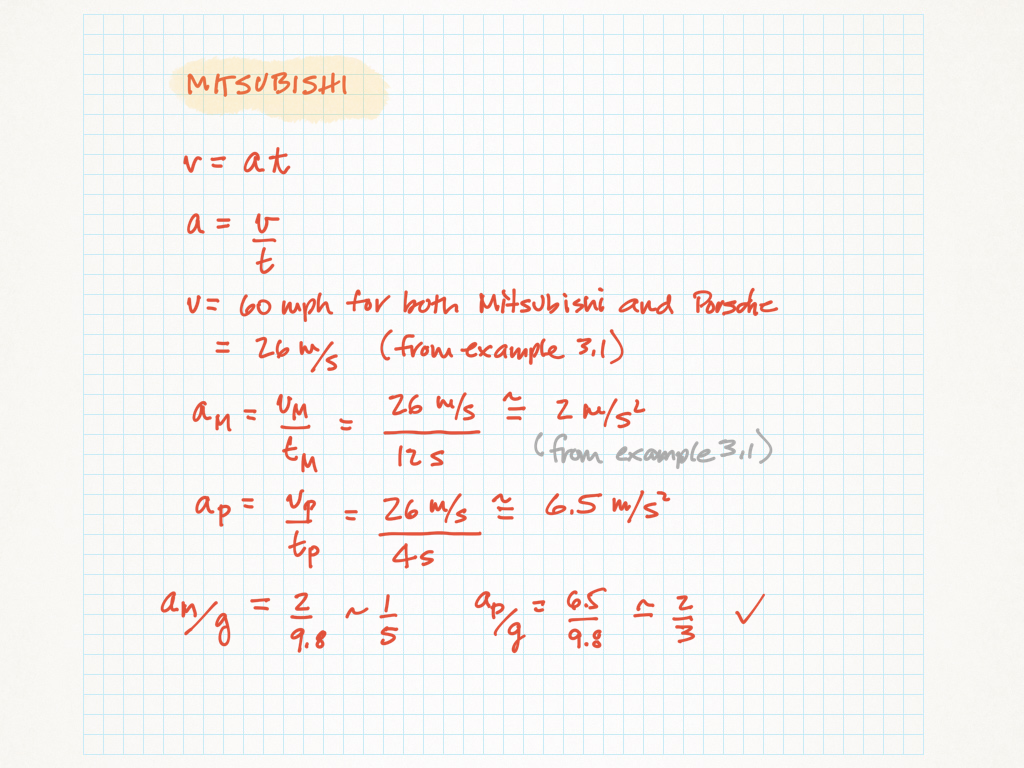 MITSUBISHI
v = at
a = v/t
v = 60 mph for both Mitsubishi and Porsche
= 26 m/s (from example 3.1)
a_M = v_M/t_M = 26 m/s / 12 s ≅ 2 m/s²
(from example 3.1)
a_p = v_p/t_p = 26 m/s / 4s ≅ 6.5 m/s²
a_M/g = 2/9.8 ~ 1/5 a_p/g = 6.5/9.8 ≃ 2/3 ✓